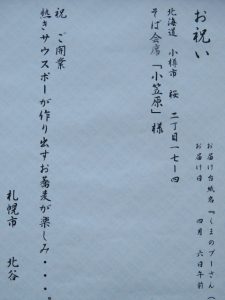 お祝い
北海道 小樽市 桜 二丁目一七ー四
そば会席「小笠原」様
お届け台紙名『しまのプーさん（
お届け日 四月 六日午前
祝 ご開業
熱きサウスポーが作り出すお蕎麦が楽しみ・・・。
札幌市 北谷